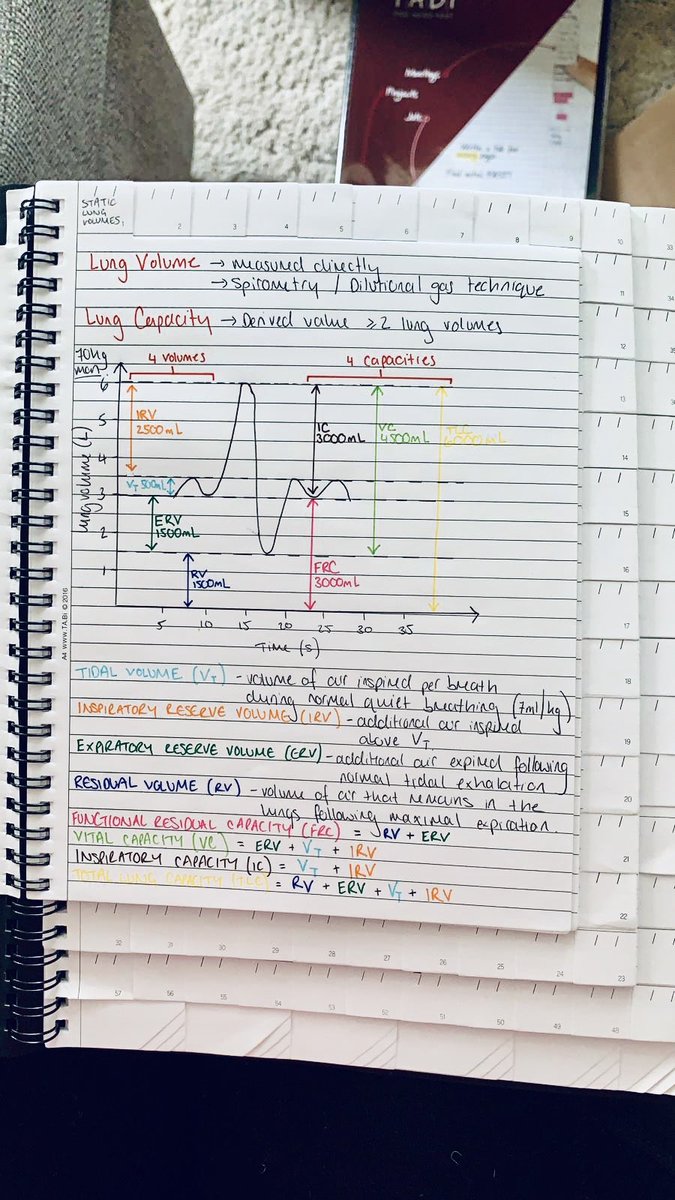 TABI
Meetings
Projects
STATIC
LUNG
VOLUMES.
2 3 4 5 6 7 8 9 10
LUNG VOLUME → measured directly
→ Spirometry / Dilutional gas technique
LUNG CAPACITY → Derived value ≥ 2 lung volumes
70kg
man
4 volumes
4 capacities
6
5
4
3
2
1
lung volume (L)
IRV
2500mL
VT 500mL
ERV
1500mL
RV
1500mL
IC
3000mL
VC
4500mL
TLC
6000mL
FRC
3000mL
5 10 15 20 25 30 35
TIME (s)
TIDAL VOLUME (VT) - volume of air inspired per breath
during normal quiet breathing (7ml/kg)
INSPIRATORY RESERVE VOLUME (IRV) - additional air inspired
above VT
EXPIRATORY RESERVE VOLUME (ERV) - additional air expired following
normal tidal exhalation
RESIDUAL VOLUME (RV) - volume of air that remains in the
lungs following maximal expiration.
FUNCTIONAL RESIDUAL CAPACITY (FRC) = RV + ERV
VITAL CAPACITY (VC) = ERV + VT + IRV
INSPIRATORY CAPACITY (IC) = VT + IRV
TOTAL LUNG CAPACITY (TLC) = RV + ERV + VT + IRV
A4 WWW.TA.Bi © 2016
11
12
13
14
15
16
17
18
19
20
21
22
23
33
34
32 31 30 29 28 27 26 25 24
57 56 55 54 53 52 51 50 49 48